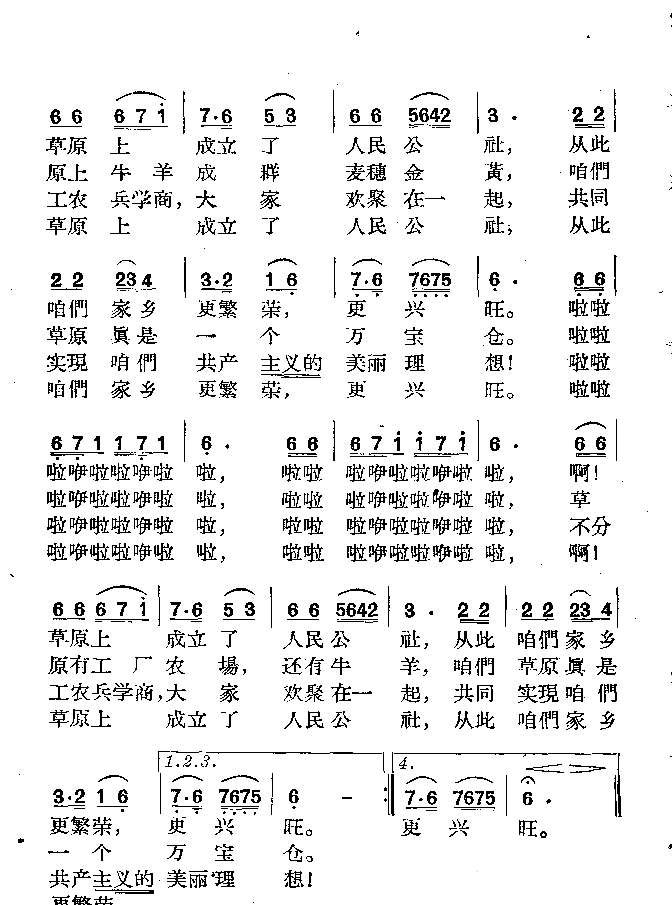 6 6 6 7 i 7·6 5 3 6 6 5642 3· 2 2
草原上 成立了 人民公 社，从此
原上牛羊成群 麦穗金黃，咱們
工农兵学商，大家 欢聚在一起，共同
草原上 成立了 人民公 社；从此
2 2 23 4 3·2 1 6 7·6 7675 6· 6 6
咱們家乡 更繁荣，更兴旺。啦啦
草原眞是 一个 万宝仓。啦啦
实現咱們 共产主义的美丽理想！啦啦
咱們家乡 更繁荣，更兴旺。啦啦
6 7 1 1 7 1 6· 6 6 6 7 i i 7 i 6· 6 6
啦咿啦啦咿啦 啦，啦啦 啦咿啦啦咿啦 啦，啊！
啦咿啦啦咿啦 啦，啦啦 啦咿啦啦咿啦 啦，草
啦咿啦啦咿啦 啦，啦啦 啦咿啦啦咿啦 啦，不分
啦咿啦啦咿啦 啦，啦啦 啦咿啦啦咿啦 啦，啊！
6 6 6 7 i 7·6 5 3 6 6 5642 3· 2 2 2 2 23 4
草原上 成立了 人民公 社，从此 咱們家乡
原有工厂农場，还有牛羊，咱們 草原眞是
工农兵学商，大家 欢聚在一起，共同 实現咱們
草原上 成立了 人民公 社，从此 咱們家乡
1.2.3. 4.
3·2 1 6 7·6 7675 6 – :‖ 7·6 7675 6·
更繁荣，更兴旺。更兴旺。
一个 万宝仓。
共产主义的美丽理想！
更繁荣